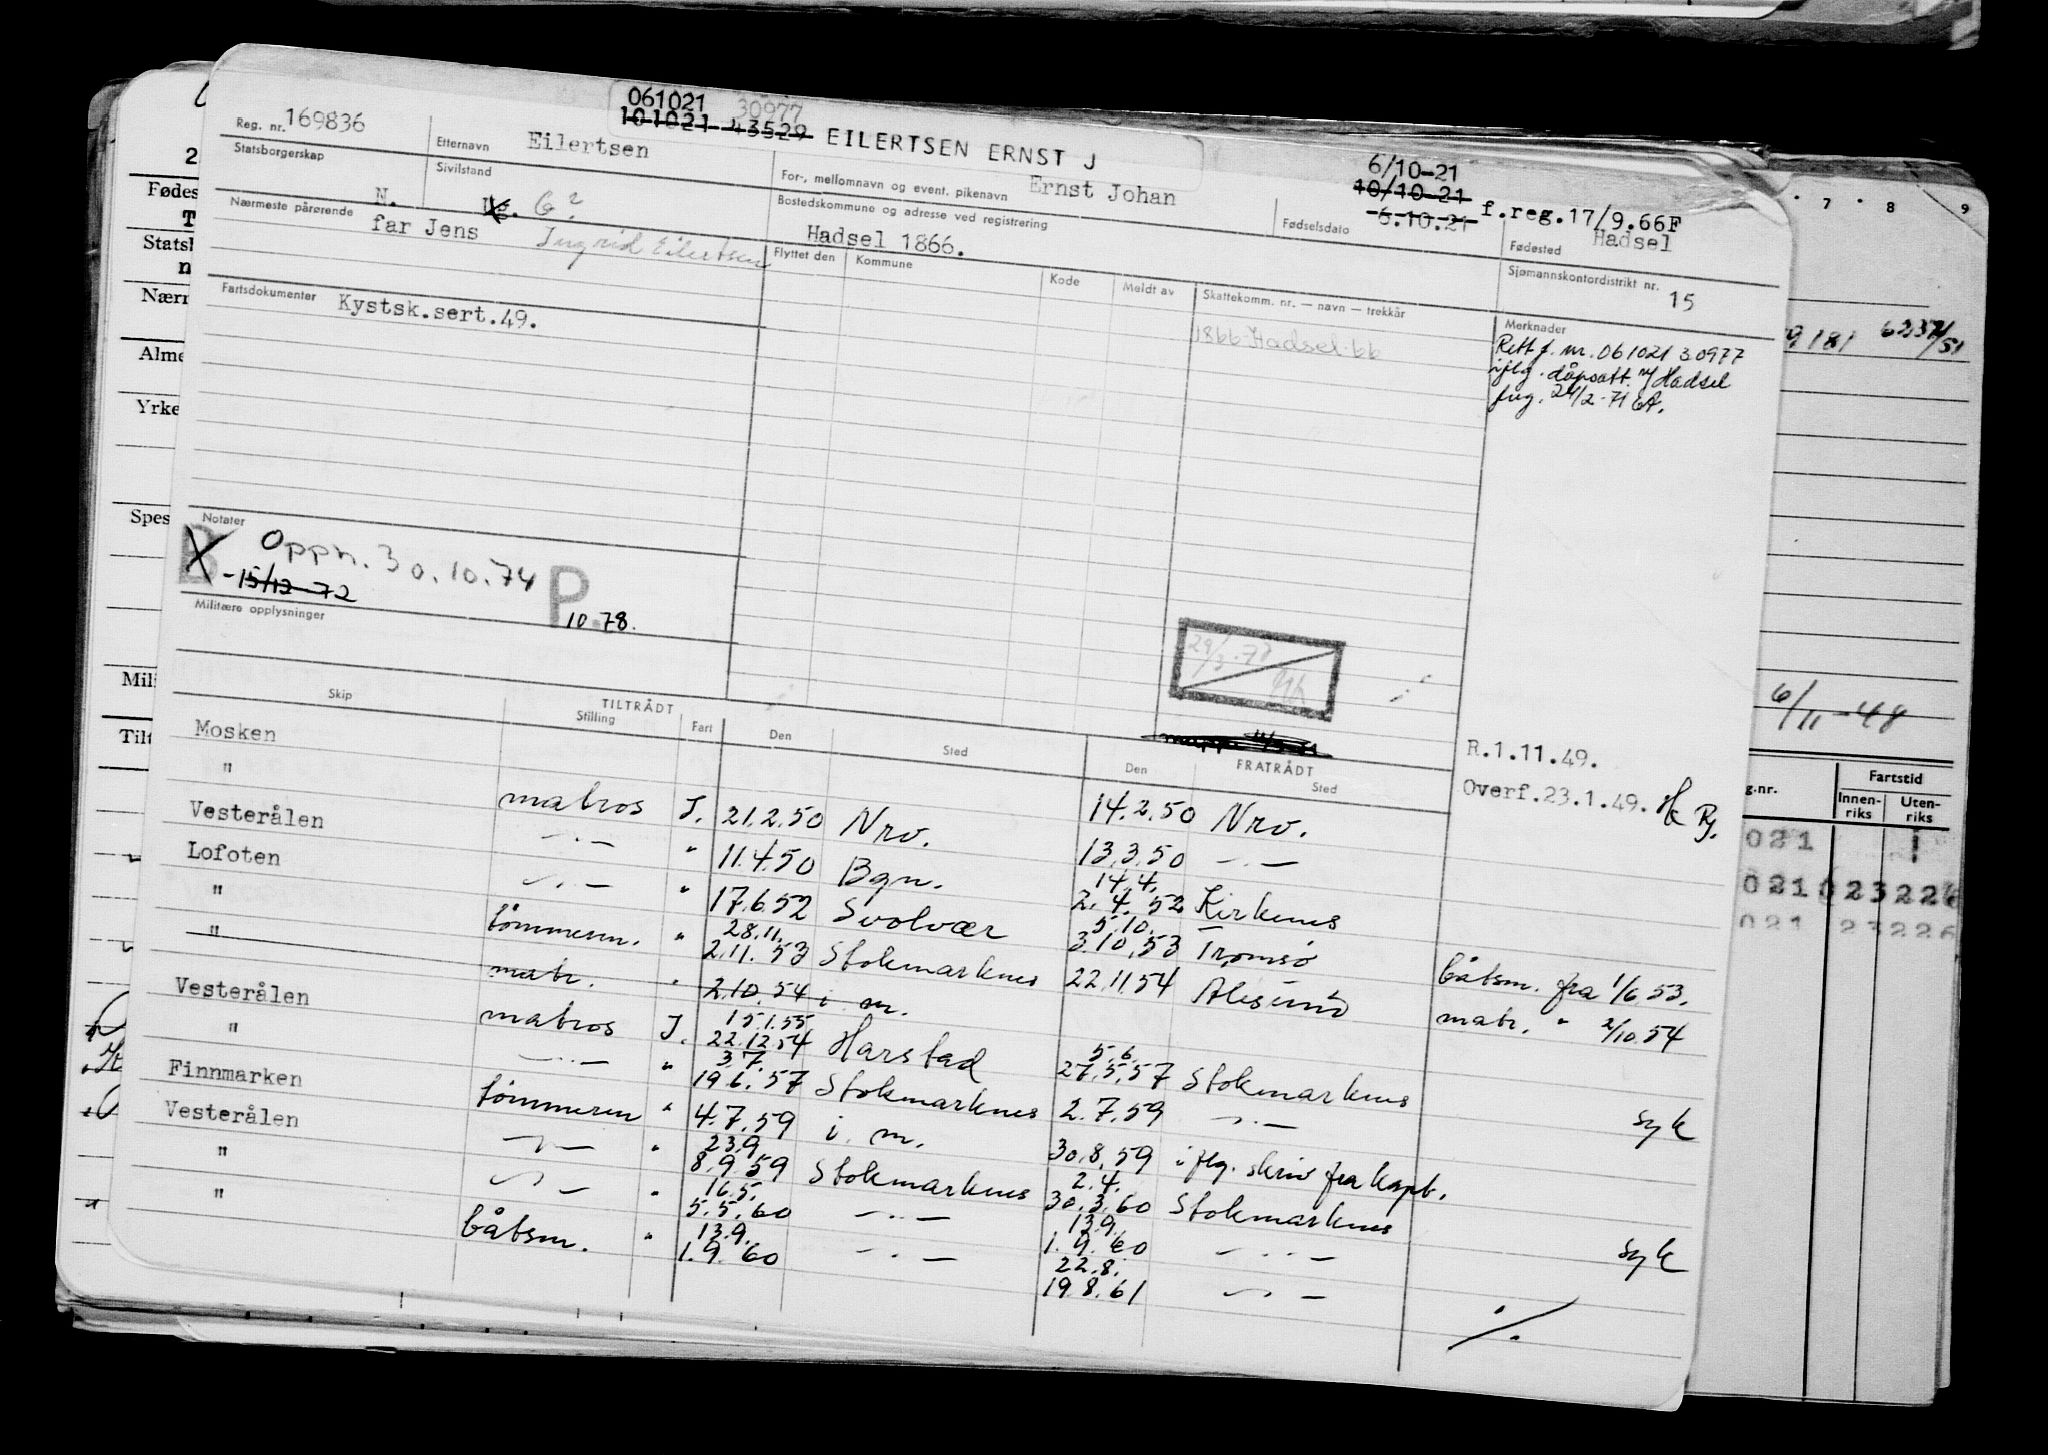 061021 30977
101021 43529 EILERTSEN ERNST J
Reg. nr. 169836
Etternavn Eilertsen
For-, mellomnavn og event. pikenavn Ernst Johan
6/10-21
10/10-21 f.reg.17/9.66F
Fødselsdato 6.10.21
Fødested Hadsel
Statsborgerskap N.
Sivilstand ug. G?
Bostedskommune og adresse ved registrering
Hadsel 1866.
Sjømannskontordistrikt nr. 15
Nærmeste pårørende far Jens Ingrid Eilertsen
Flyttet den Kommune Kode Meldt av Skattekomm. nr. — navn — trekkår
1866 Hadsel 66
Fartsdokumenter Kystsk.sert.49.
Merknader
Rett f. nr. 061021 30977
iflg. dåpsatt. m/ Hadsel
fng. 24/2-71 EA.
Notater
B Oppn. 30.10.74
-15/12-72
P 10.78.
Militære opplysninger
29/3.77
Skip TILTRÅDT Stilling Fart Den Sted Den FRATRÅDT Sted
R.1.11.49.
Overf.23.1.49.
Mosken 14.2.50 Nrv.
" matros J. 21.2.50 Nrv. 13.3.50 —··—
Vesterålen —··— " 11.4.50 Bgn. 14.4. 2.4.52 Kirkenes
Lofoten —··— " 17.6.52 Svolvær 5.10. 3.10.53 Tromsø båtsm. fra 1/6 53.
" tømmerm. " 28.11. 2.11.53 Stokmarknes 22.11.54 Ålesund matr. " 2/10.54
" matr. " 2.10.54 i. m.
Vesterålen matros J. 15.1.55 22.12.54 Harstad 5.6. 27.5.57 Stokmarknes
" —··— " 3.7. 19.6.57 Stokmarknes 2.7.59 —··— syk
Finnmarken tømmerm " 4.7.59 i. m. 30.8.59 iflg. skriv fra kapt.
Vesterålen —··— " 23.9 8.9.59 Stokmarknes 2.4. 30.3.60 Stokmarknes
" —··— " 16.5. 5.5.60 —··— 13.9. 1.9.60 —··— syk
" båtsm. " 13.9. 1.9.60 —··— 22.8. 19.8.61 —··—
./.
Fødes
Statsl
Nærr
Alme
Yrke
Spes
Mili
Tilt
7 8 9
6/11-48
g.nr. Fartstid
Innen-riks Uten-riks
021
021 023226
021 23226